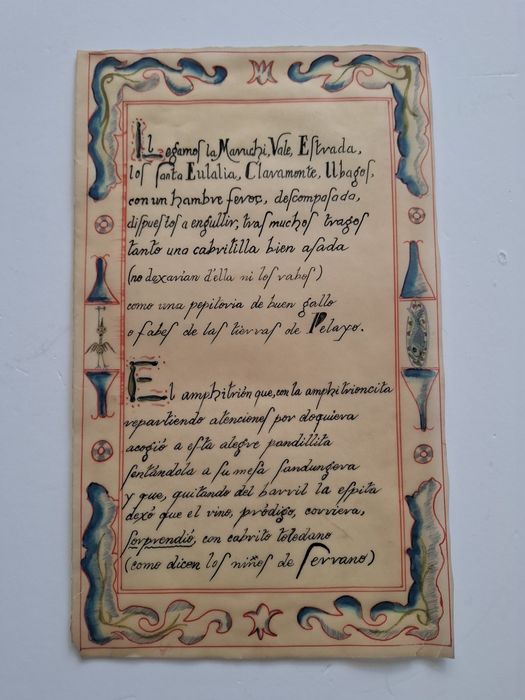 Llegamos la Maruchi, Vale, Estrada,
los santa Eulalia, Claramonte, Ubagos,
con un hambre feroz, descompasada,
dispuestos a engullir, tras muchos tragos
tanto una cabritilla bien asada
(no dexarian d'ella ni los rabos)
como una pepitoria de buen gallo
o fabes de las tierras de Pelayo.
El amphitrión que, con la amphitrioncita
repartiendo atenciones por doquiera
acogió a esta alegre pandillita
sentándola a su mesa sandungera
y que, quitando del barril la espita
dexó que el vino, pródigo, corriera,
sorprendió, con cabrito toledano
(como dicen los niños de Serrano)